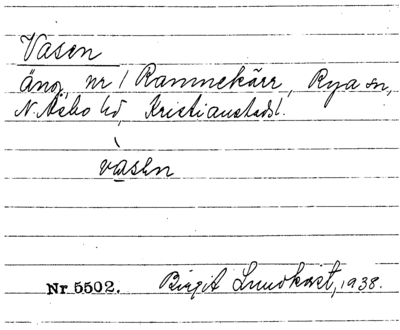 Vasen
äng, nr 1 Rammekärr, Rya sn,
N. Åsbo hd, Kristianstads l.
vasen
Nr 5502. Birgit Lundkvist, 1938.